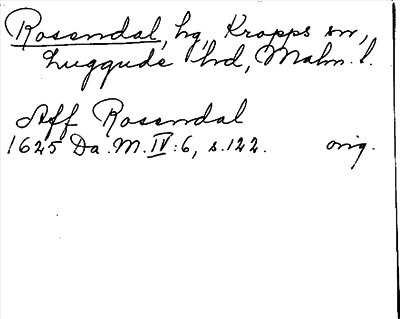 Rosendal, hg, Kropps sn,
Luggude hd, Malm. l.
Aff Rosendal
1625 Da. M. IV:6, s. 122. orig.